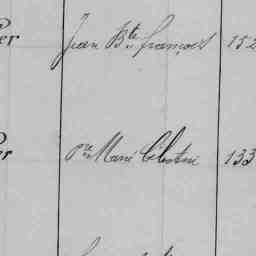 er Jean Bte François 152
er Pre Marie Célestine 133